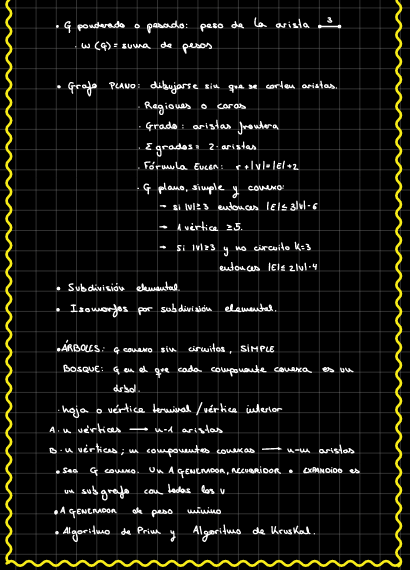 • G ponderado o pesado: peso de la arista 3
· w (G) = suma de pesos
• Grafo PLANO: dibujarse sin que se corten aristas.
· Regiones o caras
· Grado: aristas frontera
· Σ grados = 2·aristas
· Fórmula EULER: r+|V|=|E|+2
· G plano, simple y conexo:
→ si |V|≥3 entonces |E|≤3|V|-6
→ 1 vértice ≥5.
→ Si |V|≥3 y no circuito k=3
entonces |E|≤2|V|-4
• Subdivisión elemental
• Isomorfos por subdivisión elemental.
• ÁRBOLES: G conexo sin circuitos, SIMPLE
BOSQUE: G en el que cada componente conexa es un
árbol.
· hoja o vértice terminal / vértice interior
A. n vértices → n-1 aristas
B. n vértices; m componentes conexas → n-m aristas
• Sea G conexo. Un A GENERADOR, RECUBRIDOR o EXPANDIDO es
un subgrafo con todos los v
• A GENERADOR de peso mínimo
• Algoritmo de Prim y Algoritmo de Kruskal.